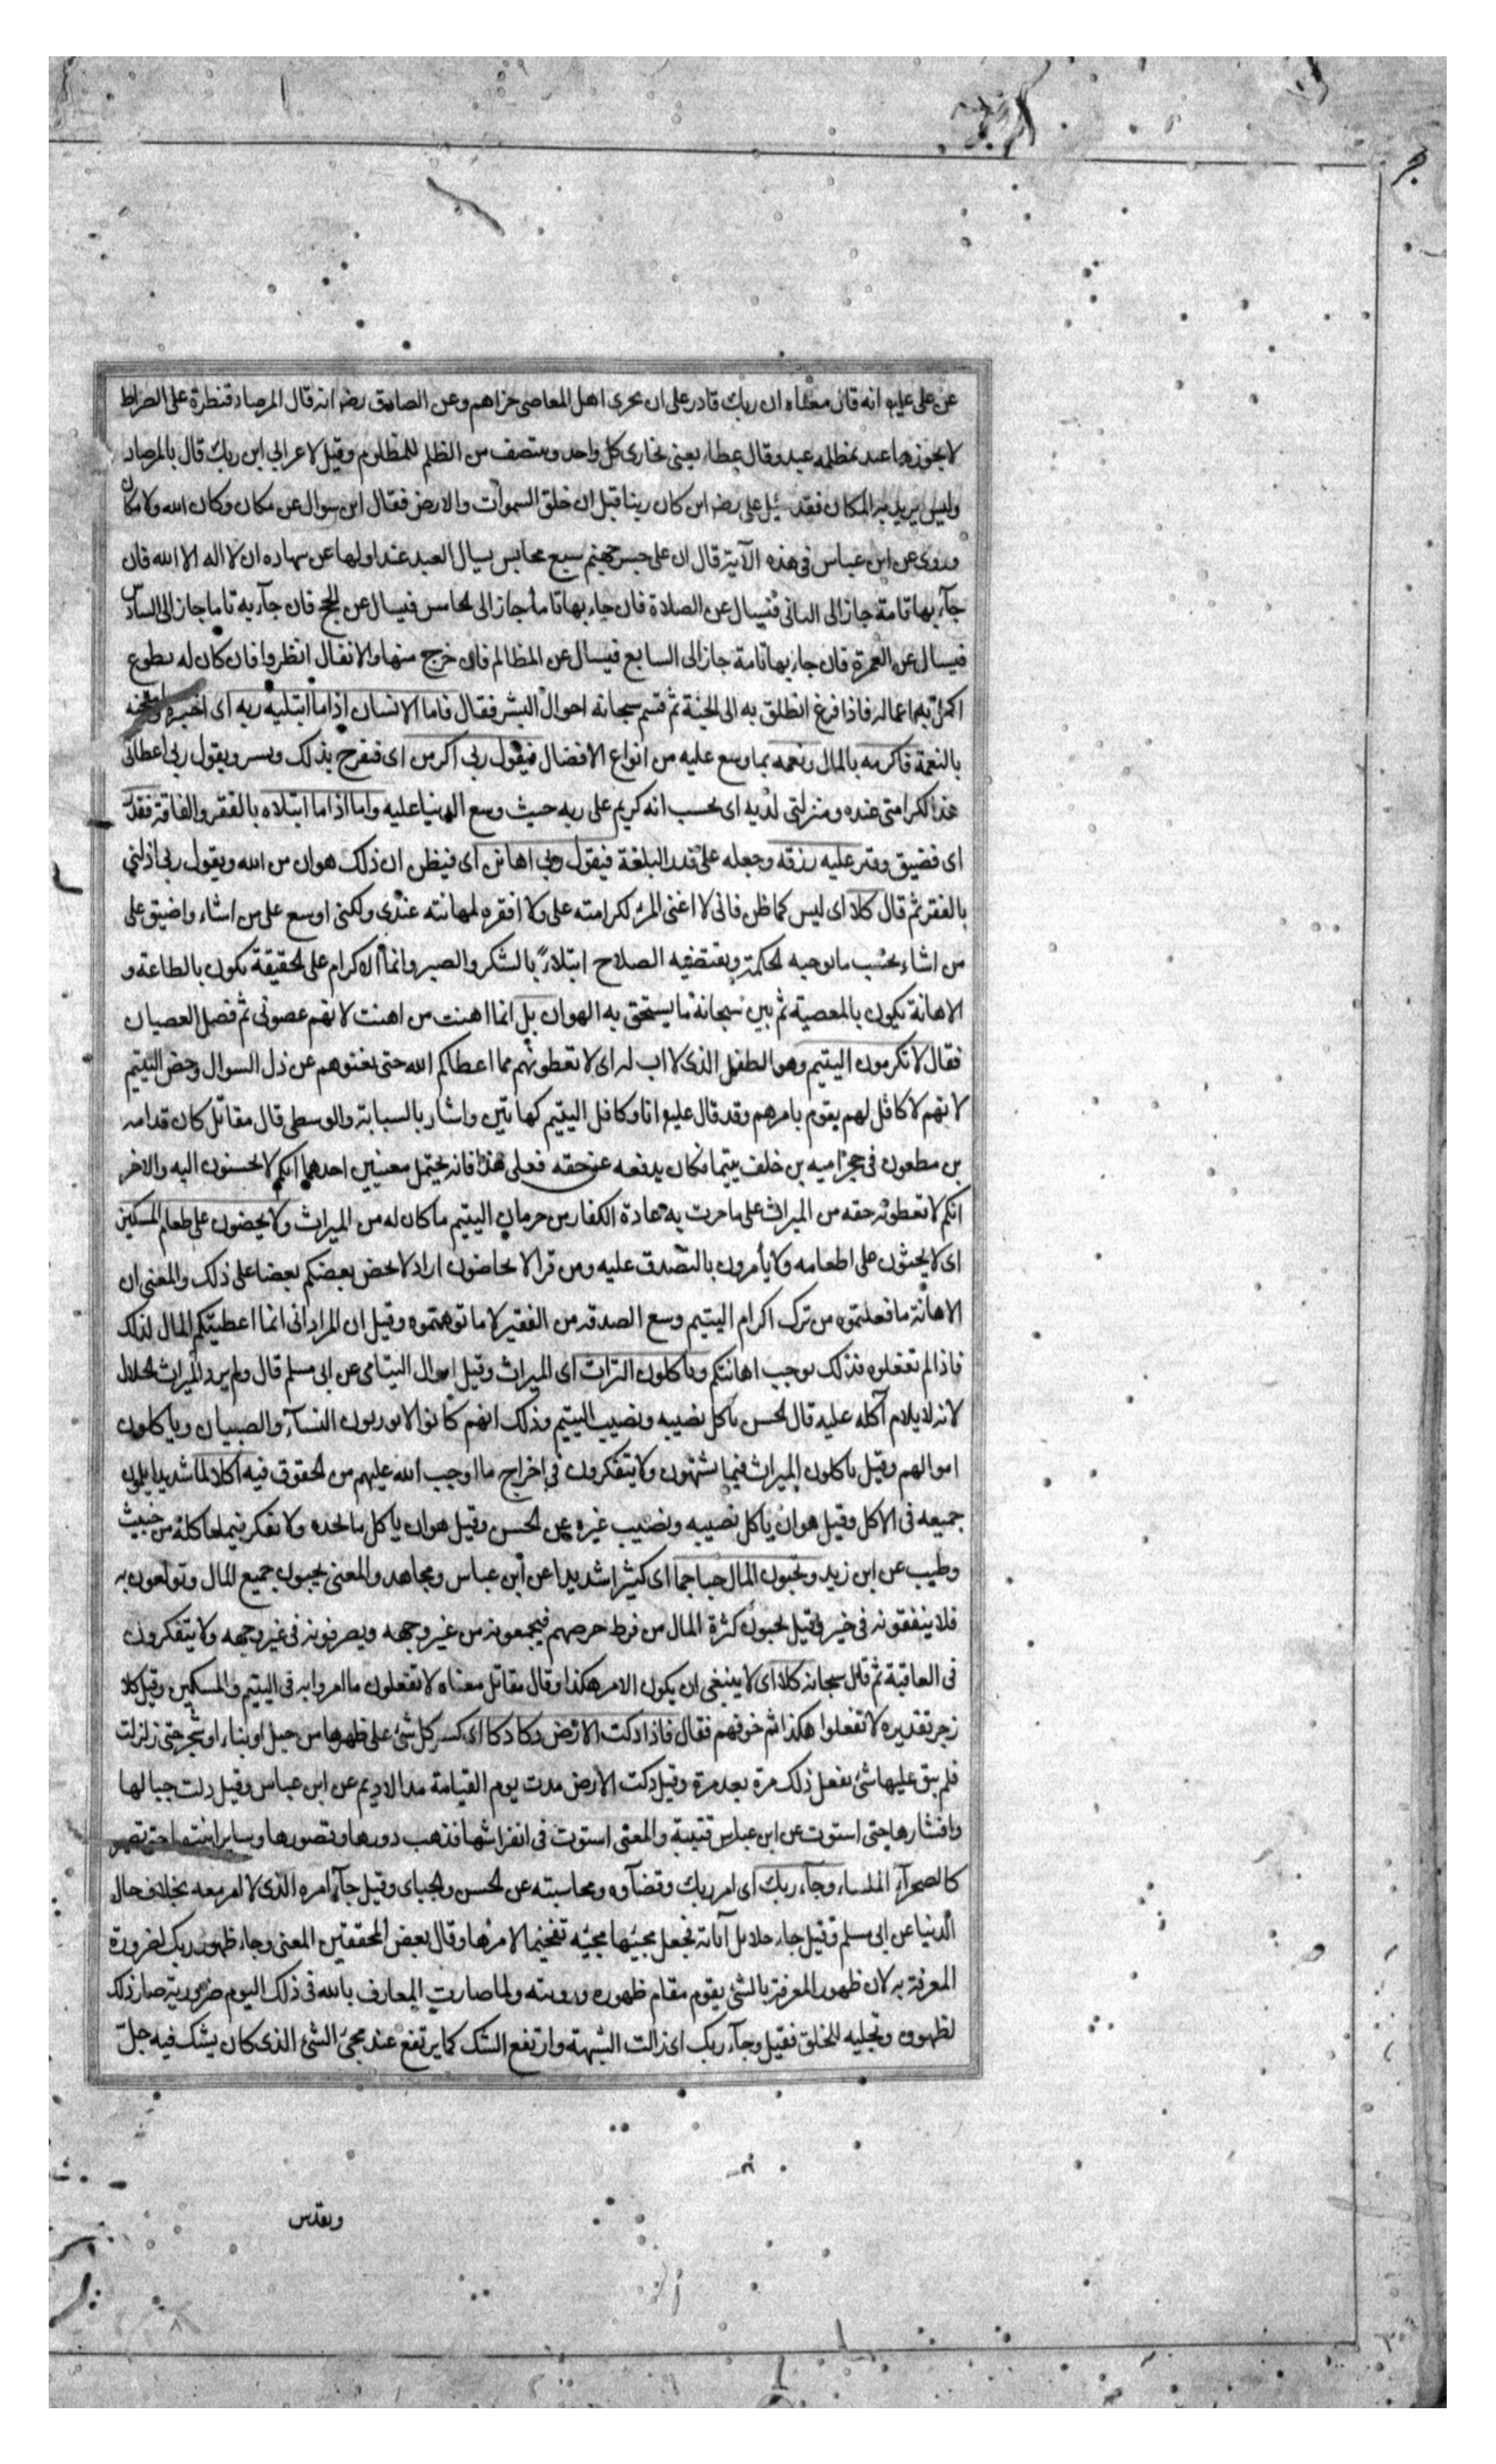 عن علی علیه انه قال معناه ان ربك قادر علی ان یجزی اهل المعاصی جزاهم وعن الصادق رضه انه قال المرصاد قنطرة علی الصراط
لا یجوزها عبد بمظلمه عبد وقال عطاء یعنی یجازی کل واحد وینتصف من الظلم للمظلوم وقیل لاعرابی این ربك قال بالمرصاد
ولیس یرید به المکان فقد سئل علی رضه این کان ربنا قبل ان خلق السموات والارض فقال این سوال عن مکان وکان الله ولا مکان
وروی عن ابن عباس فی هذه الآیة قال ان علی جسر جهنم سبع محابس یسال العبد عند اولها عن شهاده ان لا اله الا الله فان
جآء بها تامة جاز الی الثانی فیسال عن الصلاة فان جاء بها تاما جاز الی الخامس فیسال عن الحج فان جآء به تاما جاز الی السادس
فیسال عن العمرة فان جاء بها تامة جاز الی السابع فیسال عن المظالم فان خرج منها والا فقال انظروا فان کان له تطوع
اکمل به اعماله فاذا فرغ انطلق به الی الجنة ثم قسم سبحانه احوال البشر فقال فاما الانسان اذا ما ابتلیه ربه ای اختبره وامتحنه
بالنعمة فاکرمه بالمال ونعمه بما وسع علیه من انواع الافضال فیقول ربی اکرمن ای فیفرح بذلك ویسر ویقول ربی اعطانی
هذا لکرامتی عنده ومنزلتی لدیه ای یحسب انه کریم علی ربه حیث وسع الدنیا علیه واما اذا ما ابتلاه بالفقر والفاقة فقدر
ای فضیق وقتر علیه رزقه وجعله علی قدر البلغة فیقول ربی اهانن ای فیظن ان ذلك هوان من الله ویقول ربی اذلنی
بالفقر ثم قال کلا ای لیس کما ظن فانی لا اغنی المرء لکرامته علی ولا افقره لمهانته عندی ولکنی اوسع علی من اشاء واضیق علی
من اشاء بحسب ما توجبه الحکمة ویقتضیه الصلاح ابتلاءً بالشکر والصبر وانما الاکرام علی الحقیقة یکون بالطاعة و
الاهانة یکون بالمعصیة ثم بین سبحانه ما یستحق به الهوان بل انما اهنت من اهنت لانهم عصونی ثم فصل العصیان
فقال لا تکرمون الیتیم وهو الطفل الذی لا اب له ای لا تعطونهم مما اعطاکم الله حتی یغنوهم عن ذل السوال وخص الیتیم
لانهم لا کافل لهم یقوم بامرهم وقد قال علیه انا وکافل الیتیم کهاتین واشار بالسبابة والوسطی قال مقاتل کان قدامه
بن مظعون فی حجر امیه بن خلف یتیما فکان یدفعه عن حقه فعلی هذا فانه یحتمل معنیین احدهما انکم لا تحسنون الیه والاخر
انکم لا تعطونه حقه من المیراث علی ما جرت به عادة الکفار من حرمان الیتیم ما کان له من المیراث ولا یحضون علی طعام المسکین
ای لا یحثون علی اطعامه ولا یأمرون بالتصدق علیه ومن قرا لا تحاضون اراد لا یحض بعضکم بعضا علی ذلك والمعنی ان
الاهانة ما فعلتموه من ترك اکرام الیتیم ومنع الصدقه من الفقیر لا ما توهمتموه وقیل ان المراد انی انما اعطیتکم المال لذلك
فاذا لم تفعلوه فذلك یوجب اهانتکم ویأکلون التراث ای المیراث وقیل اموال الیتامی عن ابی مسلم قال ولم یرد المیراث الحلال
لانه لا یلام آکله علیه قال الحسن یأکل نصیبه ونصیب الیتیم وذلك انهم کانوا لا یورثون النسآء والصبیان ویاکلون
اموالهم وقیل یاکلون المیراث فیما یشتهون ولا یتفکرون فی اخراج ما اوجب الله علیهم من الحقوق فیه اکلا لما شدیدا یلمون
جمیعه فی الاکل وقیل هو ان یاکل نصیبه ونصیب غیره عن الحسن وقیل هو ان یاکل ما یجده ولا یفکر فیما یاکله من خبیث
وطیب عن ابن زید وتحبون المال حبا جما ای کثیرا شدیدا عن ابن عباس ومجاهد والمعنی یحبون جمیع المال وتولعون به
فلا ینفقونه فی خیر وقیل یحبون کثرة المال من فرط حرصهم فیجمعونه من غیر وجهه ویصرفونه فی غیر وجهه ولا یتفکرون
فی العاقبة ثم قال سبحانه کلا ای لا ینبغی ان یکون الامر هکذا وقال مقاتل معناه لا تفعلون ما امروا به فی الیتیم والمسکین وقیل کلا
زجر تقدیره لا تفعلوا هکذا ثم خوفهم فقال فاذا دکت الارض دکا دکا ای کسر کل شئ علی ظهرها من جبل او بناء او شجر حتی زلزلت
فلم یبق علیها شئ یفعل ذلك مرة بعد مرة وقیل دکت الارض مدت یوم القیامة مد الادیم عن ابن عباس وقیل دکت جبالها
وانشارها حتی استوت عن ابن عباس قتیبة والمعنی استوت فی انفراشها فذهب دورها وقصورها وسایر ابنیتها حتی تصیر
کالصحرآء الملساء وجآء ربك ای امر ربك وقضآوه ومحاسبته عن الحسن والجبای وقیل جآء امره الذی لا امر معه بخلاف حال
الدنیا عن ابی مسلم وقیل جاء جلایل آیاته فجعل مجیئها مجیئه تفخیما لامرها وقال بعض المحققین المعنی وجاء ظهور ربك لضرورة
المعرفة به لان ظهور المعرفة بالشئ یقوم مقام ظهوره ورویته ولما صارت المعارف بالله فی ذلك الیوم ضروریة صار ذلك
لظهوره وتجلیه للخلق فقیل وجآء ربك ای زالت الشبهة وارتفع الشك کما یرتفع عند مجئ الشئ الذی کان یشك فیه جل
وتقدس